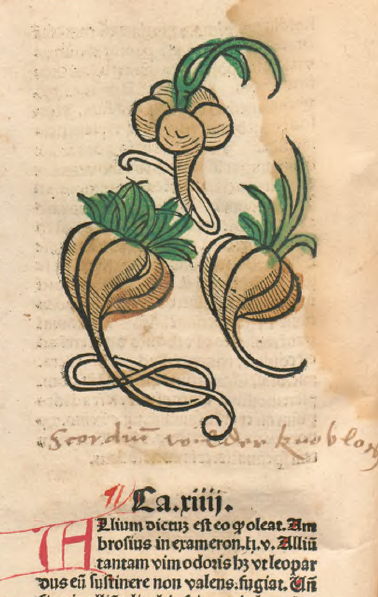 Scordiū wilder knoblox
Ca.xiiij.
Allium dictuz est eo ꝙ oleat. Am
brosius in exameron.li.v. Alliū
tantam vim odoris hz vt leopar
dus eū sustinere non valens.fugiat. Un̄